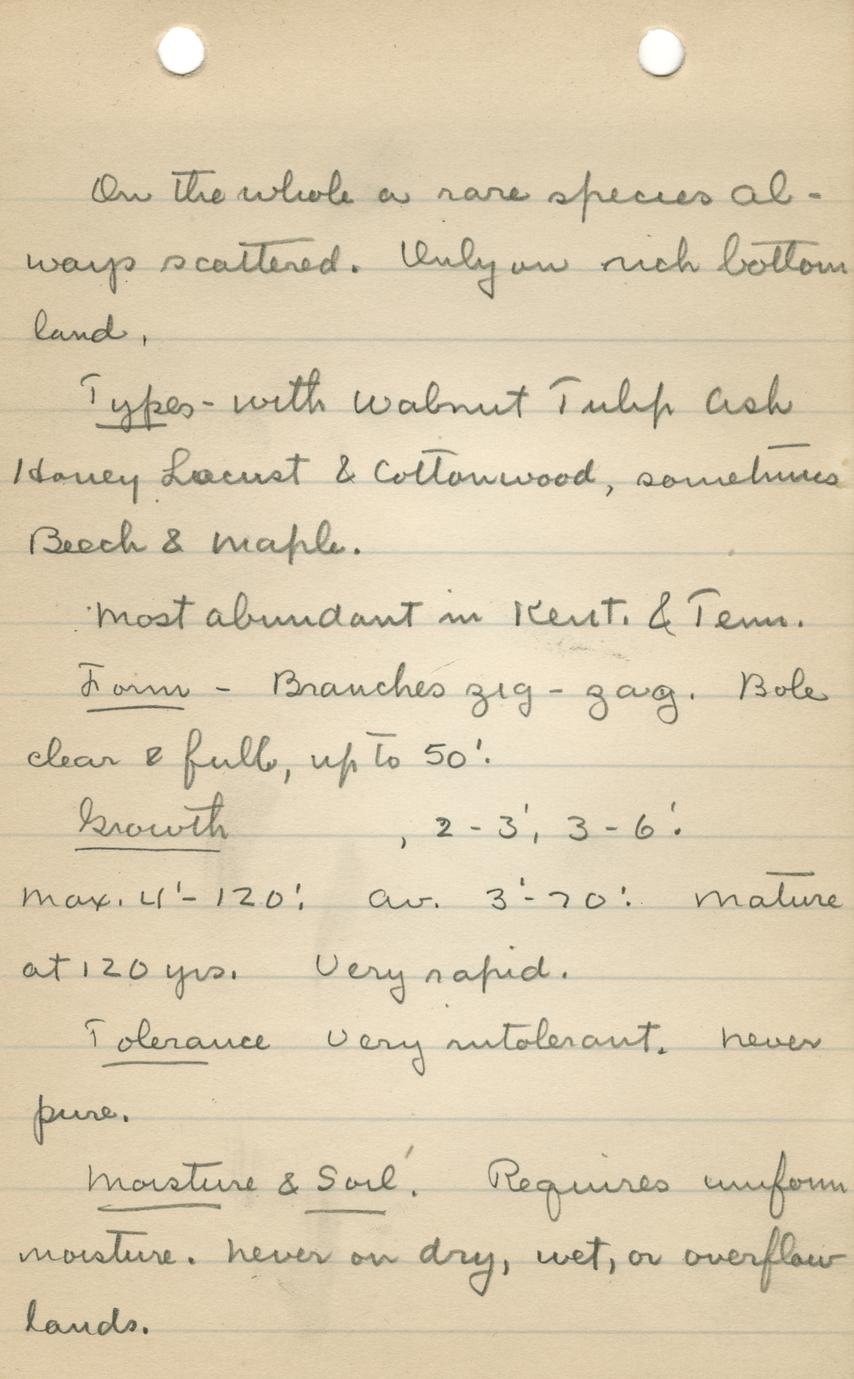 On the whole a rare species al-
ways scattered. Only on rich bottom
land.
Types - with Walnut Tulip Ash
Honey Locust & Cottonwood, sometimes
Beech & Maple.
Most abundant in Kent. & Tenn.
Form - Branches zig-zag. Bole
clear & full, up to 50'.
Growth , 2-3', 3-6'.
Max. 4'-120'. Av. 3'-70'. Mature
at 120 yrs. Very rapid.
Tolerance Very intolerant. Never
pure.
Moisture & Soil. Requires uniform
moisture. Never on dry, wet, or overflow
lands.